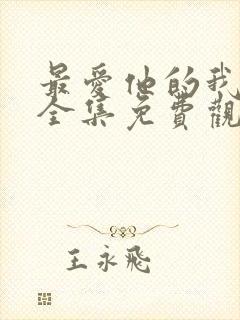 最愛他的我
全集免費觀
王永飛